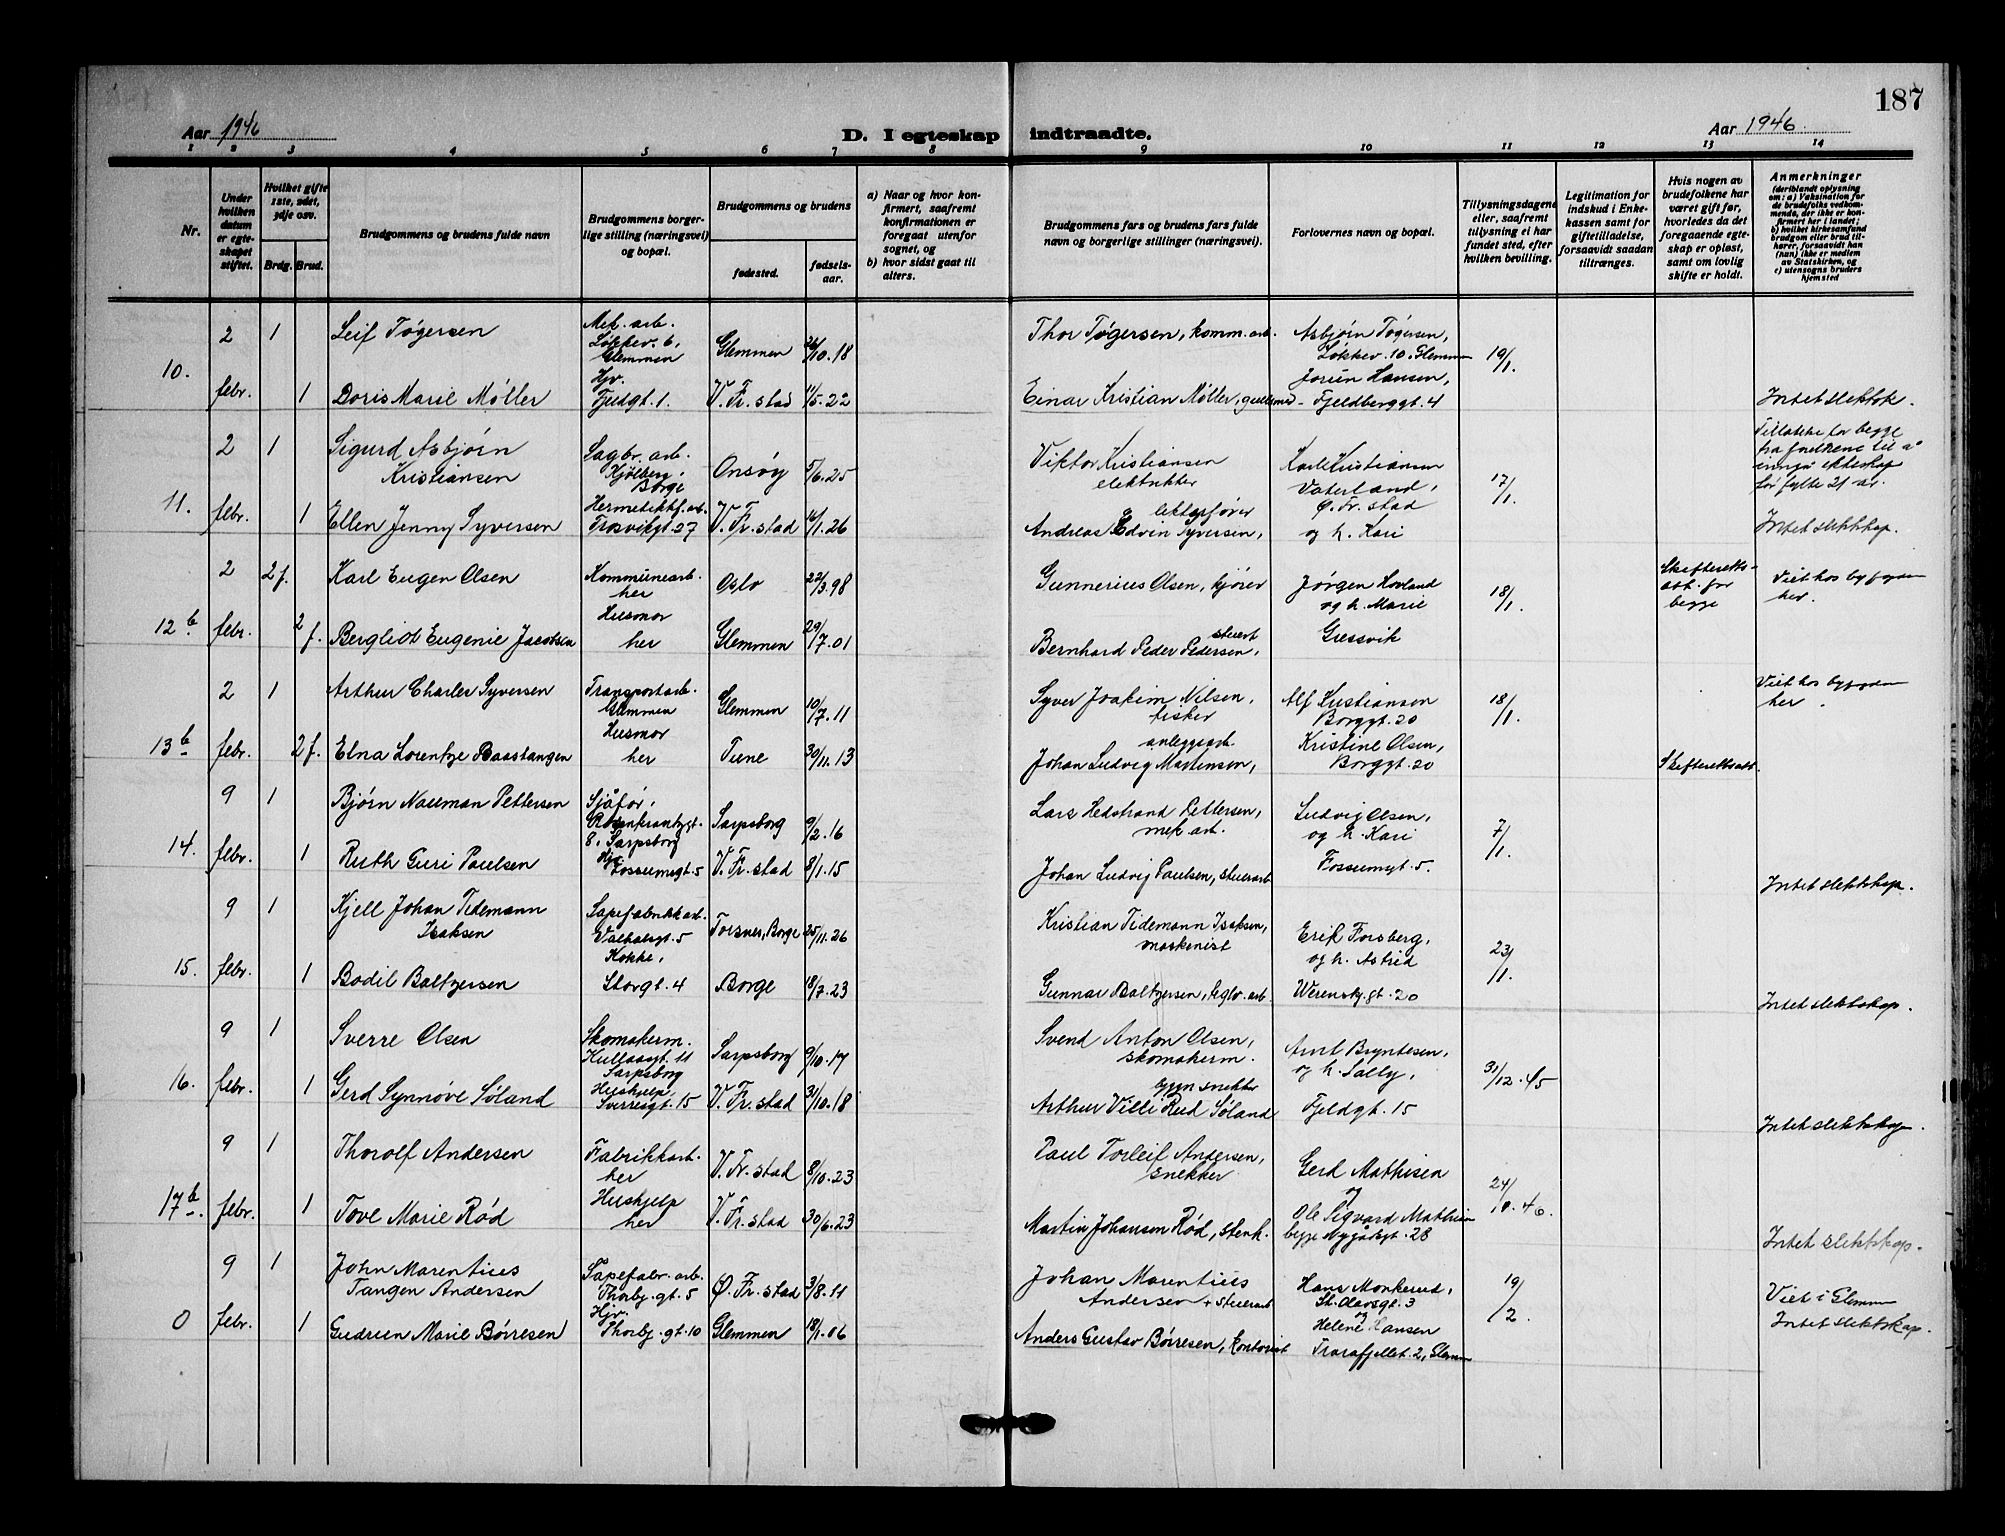 187
Aar 1946
D. I egteskap indtraadte.
Aar 1946
1 2 3 4 5 6 7 8 9 10 11 12 13 14
Nr.
Under hvilken datum er egteskapet stiftet.
Hvilket gifte 1ste, 2det, 3dje osv.
Brdg. Brud.
Brudgommens og brudens fulde navn
Brudgommens borgerlige stilling (næringsvei) og bopæl.
Brudgommens og brudens
fødested.
fødselsaar.
a) Naar og hvor konfirmert, saafremt konfirmationen er foregaaet utenfor sognet, og
b) hvor sidst gaat til alters.
Brudgommens fars og brudens fars fulde navn og borgerlige stillinger (næringsvei).
Forlovernes navn og bopæl.
Tillysningsdagene eller, saafremt tillysning ei har fundet sted, efter hvilken bevilling.
Legitimation for indskud i Enkekassen samt for giftetilladelse, forsaavidt saadan tiltrænges.
Hvis nogen av brudefolkene har været gift før, hvorledes da det foregaaende egteskap er opløst, samt om lovlig skifte er holdt.
Anmerkninger
(deriblandt oplysning om: a) Vaksination for de brudefolks vedkommende, der ikke er konfirmert her i landet; b) hvilket kirkesamfund brudgom eller brud tilhører, forsaavidt han (hun) ikke er medlem av Statskirken, og c) utensogns bruders hjemsted
10.
2 febr. 1
Leif Tøgersen
Mek. arb. Løkkev. 6, Glemmen
Glemmen 26/10.18
Thor Tøgersen, komm. arb.
Asbjørn Tøgersen, Løkkev. 10. Glemmen
19/1.
1
Doris Marie Møller
Hjv.
V. Fr. stad 11/5.22
Einar Kristian Møller, gullsmed
Jorun Hansen, Fjeldberggt. 4
11.
2 febr. 1
Sigurd Asbjørn Kristiansen
Sagbr. arb. Kjølberg, Borge
Onsøy 5/6.25
Viktor Kristiansen elektrikker
Karl Kristiansen Vaterland, Ø. Fr. stad og h. Kari
17/1.
Tillatelse for begge fra foreldrene til å inngå ekteskap før fylte 21 år.
1
Ellen Jenny Syversen
Hermetikkf. arb. Trosvikgt. 27
V. Fr. stad 16/1.26
Andreas Edvin Syversen,
Intet slektskap.
12 b
2 febr. 2 f.
Karl Eugen Olsen
Kommunearb. her
Oslo 22/3.98
Gunnerius Olsen, kjører
Jørgen Hovland og h. Marie Gressvik
18/1.
Skifterettsatt. for begge
Viet hos byfogden her.
2 f.
Bergliot Eugenie Jacobsen
Husmor her
Glemmen 29/7.01
Bernhard Peder Pedersen, stuert
13 b
2 febr. 1
Arthur Charles Syversen
Transportarb. Glemmen
Glemmen 10/7.11
Syver Joakim Nilsen, fisker
Alf Kristiansen Borggt. 20
18/1.
Viet hos byfogden her.
2 f.
Elna Lorentze Baastangen
Husmor her
Tune 30/11.13
Johan Ludvig Martensen, anleggsarb.
Kristine Olsen, Borggt. 20
Skifterettsatt.
14.
9 febr. 1
Bjørn Nauman Pettersen
Sjåfør, Rosenkrantzgt. 8, Sarpsborg
Sarpsborg 9/2.16
Lars Hedstrand Pettersen, mek arb.
Ludvig Olsen, og h. Kari Fossumsgt. 5.
7/1.
1
Ruth Guri Paulsen
Hjv. Fossumsgt. 5
V. Fr. stad 8/1.15
Johan Ludvig Paulsen, stuerarb
Intet slektskap.
15.
9 febr. 1
Kjell Johan Tidemann Isaksen
Såpefabrikkarb. Valhalsgt. 5
Torsnes, Borge 25/11.26
Kristian Tidemann Isaksen, maskinist
Erik Forsberg, og h. Astrid Werenskj. gt. 20
23/1.
1
Bodil Baltzersen
Kokke, Storgt. 4
Borge 18/7.23
Gunnar Baltzersen, teglv. arb.
Intet slektskap.
16.
9 febr. 1
Sverre Olsen
Skomakerm. Kullåsgt. 11 Sarpsborg
Sarpsborg 9/10.17
Svend Anton Olsen, skomakerm.
Arnt Bryntesen, og h. Sally, Fjeldgt. 15
31/12.45
1
Gerd Synnøve Søland
Hushjelp Sverresgt. 15
V. Fr. stad 31/10.18
Arthur Villi Rud Søland
Intet slektskap.
17 b.
9 febr. 1
Thorolf Andersen
Fabrikkarb. her
V. Fr. stad 8/10.23
Paul Torleif Andersen, snekker
Gerd Mathisen og Ole Sigvard Mathisen begge Nygårdsgt. 28
24/10.46.
1
Tove Marie Rød
Hushjelp her
V. Fr. stad 30/6.23
Martin Johansen Rød, stenh.
Intet slektskap.
0
9 febr. 1
John Marentius Tangen Andersen
Såpefabr. arb. Thorbj. gt. 5
Ø. Fr. stad 3/8.11
Johan Marentius Andersen + stuerarb
Hans Monkerud, St. Olavsgt. 3 og Helene Hansen Trarafjellet. 2, Glemm
19/2.
Viet i Glemm
1
Gudrun Marie Børresen
Hjv. Thorbj. gt. 10
Glemmen 18/1.06
Anders Gustav Børresen, kontorist
Intet slektskap.